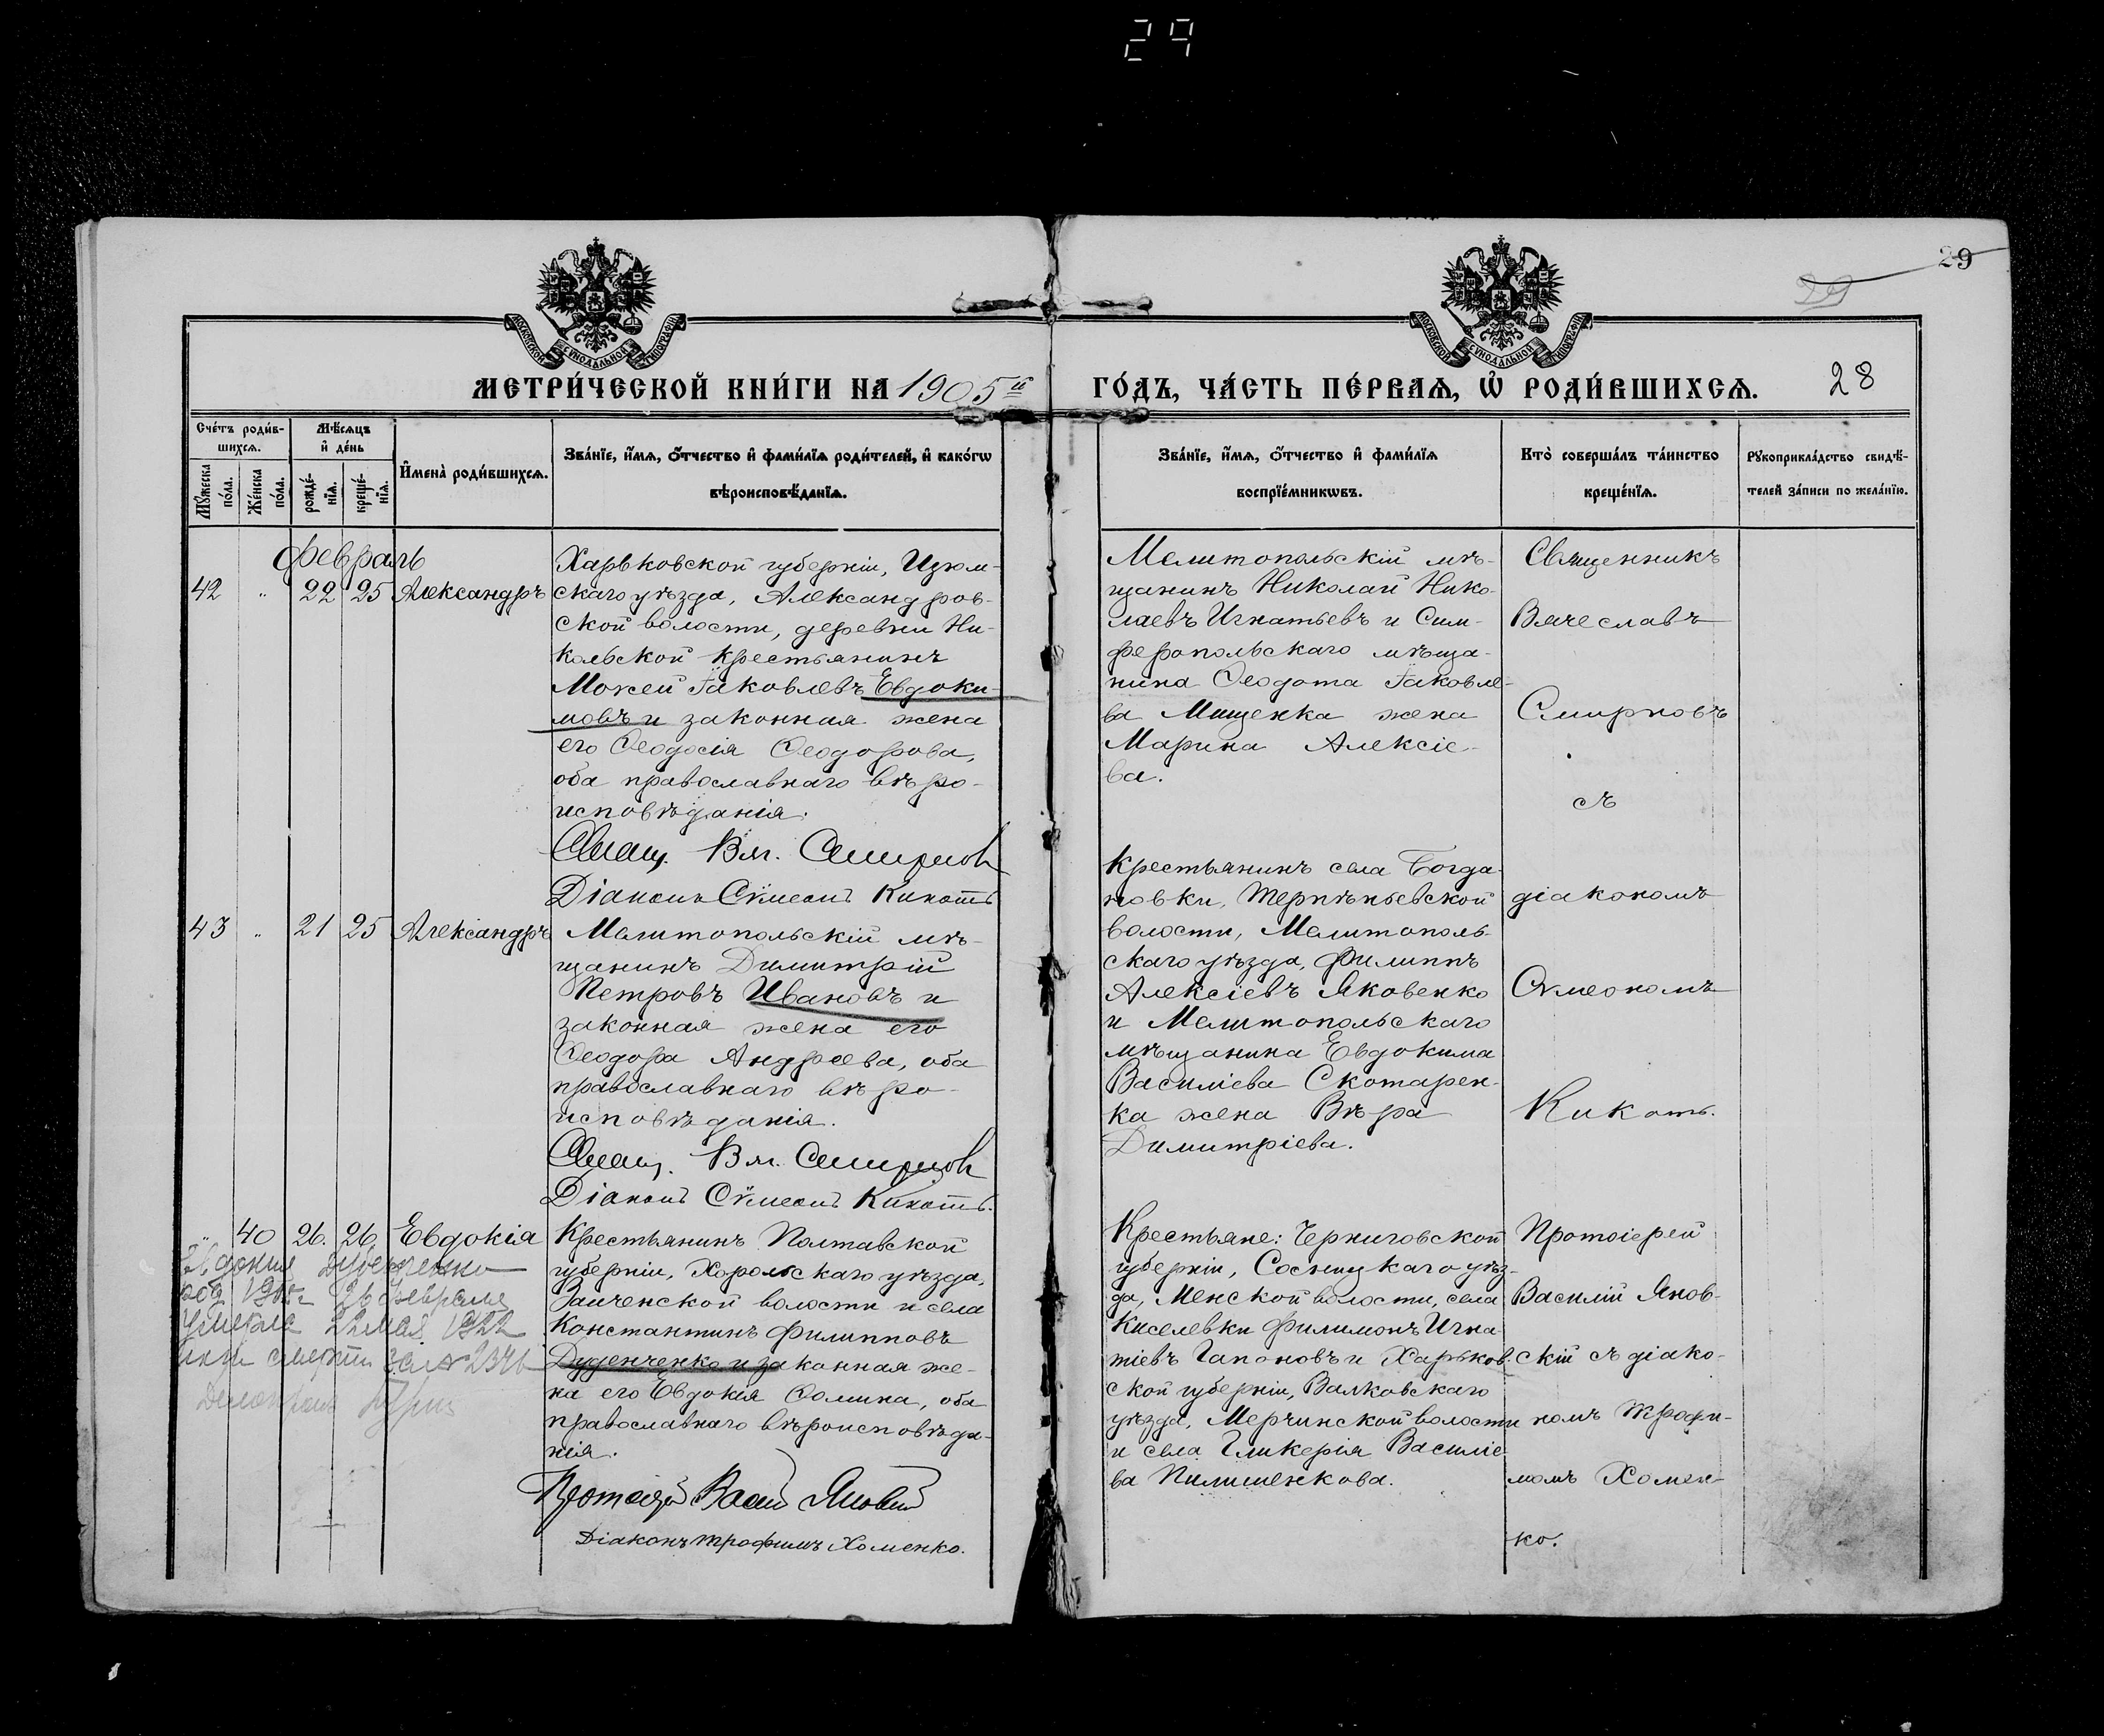 29
29
29
МОСКОВСКОЙ СѴНОДАЛЬНОЙ ТИПОГРАФІИ
МОСКОВСКОЙ СѴНОДАЛЬНОЙ ТИПОГРАФІИ
МЕТРИ́ЧЕСКОЙ КНИ́ГИ НА 1905й
ГО́ДЪ, ЧА́СТЬ ПЕ́РВАѦ, Ѡ҆ РОДИ́ВШИХСѦ.
28
Сче́тъ роди́в-
шихсѧ.
Мѣ́сѧцъ
и҆ де́нь
Мꙋ́жеска
по́ла.
Же́нска
по́ла.
рожде́-
нїѧ.
креще́-
нїѧ.
И҆мена̀ роди́вшихсѧ.
Зва́нїе, и҆́мѧ, ѻ҆́тчество и҆ фами́лїѧ роди́телей, и҆ како́гѡ
вѣроисповѣ́данїѧ.
Зва́нїе, и҆́мѧ, ѻ҆́тчество и҆ фами́лїѧ
воспрїе́мникѡвъ.
Кто̀ соверша́лъ та́инство
креще́нїѧ.
Рꙋкоприкла́дство свидѣ́-
телей за́писи по жела́нїю.
Февраль
42 " 22 25 Александръ
Харьковской губерніи, Изюм-
скаго уѣзда, Александров-
ской волости, деревни Ни-
кольской крестьянинъ
Моисей Іаковлевъ Евдоки-
мовъ и законная жена
его Ѳеодосія Ѳеодорова,
оба православнаго вѣро-
исповѣданія.
Свящ. Вяч. Смирнов
Діаконъ Сѵмеонъ Кикоть
Мелитопольскій мѣ-
щанинъ Николай Нико-
лаевъ Игнатьевъ и Сим-
феропольскаго мѣща-
нина Ѳеодота Іаковле-
ва Мищенка жена
Марина Алексіе-
ва.
Священникъ
Вячеславъ
Смирновъ
съ
діакономъ
Сѵмеономъ
Кикоть.
43 " 21 25 Александръ
Мелитопольскій мѣ-
щанинъ Димитрій
Петровъ Ивановъ и
законная жена его
Ѳеодора Андреева, оба
православнаго вѣро-
исповѣданія.
Свящ. Вяч. Смирнов
Діаконъ Сѵмеонъ Кикоть.
Крестьянинъ села Богда-
новки, Терпѣньевской
волости, Мелитополь-
скаго уѣзда, Филиппъ
Алексіевъ Яковенко
и Мелитопольскаго
мѣщанина Евдокима
Василіева Скотарен-
ка жена Вѣра
Димитріева.
" 40 26. 26. Евдокія
Евдокия Дуденченко
род. 1905г 26 Февраля
умерла 22 мая 1922
смерти за № 2376
Крестьянинъ Полтавской
губерніи, Хорольскаго уѣзда,
Заиченской волости и села
Константинъ Филипповъ
Дуденченко и законная же-
на его Евдокія Ѳомина, оба
православнаго вѣроисповѣда-
нія.
Протоіерей Васил Яновский
Діаконъ Трофимъ Хоменко.
Крестьяне: Черниговской
губерніи, Сосницкаго уѣз-
да, Менской волости, села
Киселевки Филимонъ Игна-
тіевъ Гапоновъ и Харьков-
ской губерніи, Валковскаго
уѣзда, Мерчинской волости
и села Гликерія Василіе-
ва Пилипенкова.
Протоіерей
Василій Янов-
скій съ діако-
номъ Трофи-
момъ Хомен-
ко.